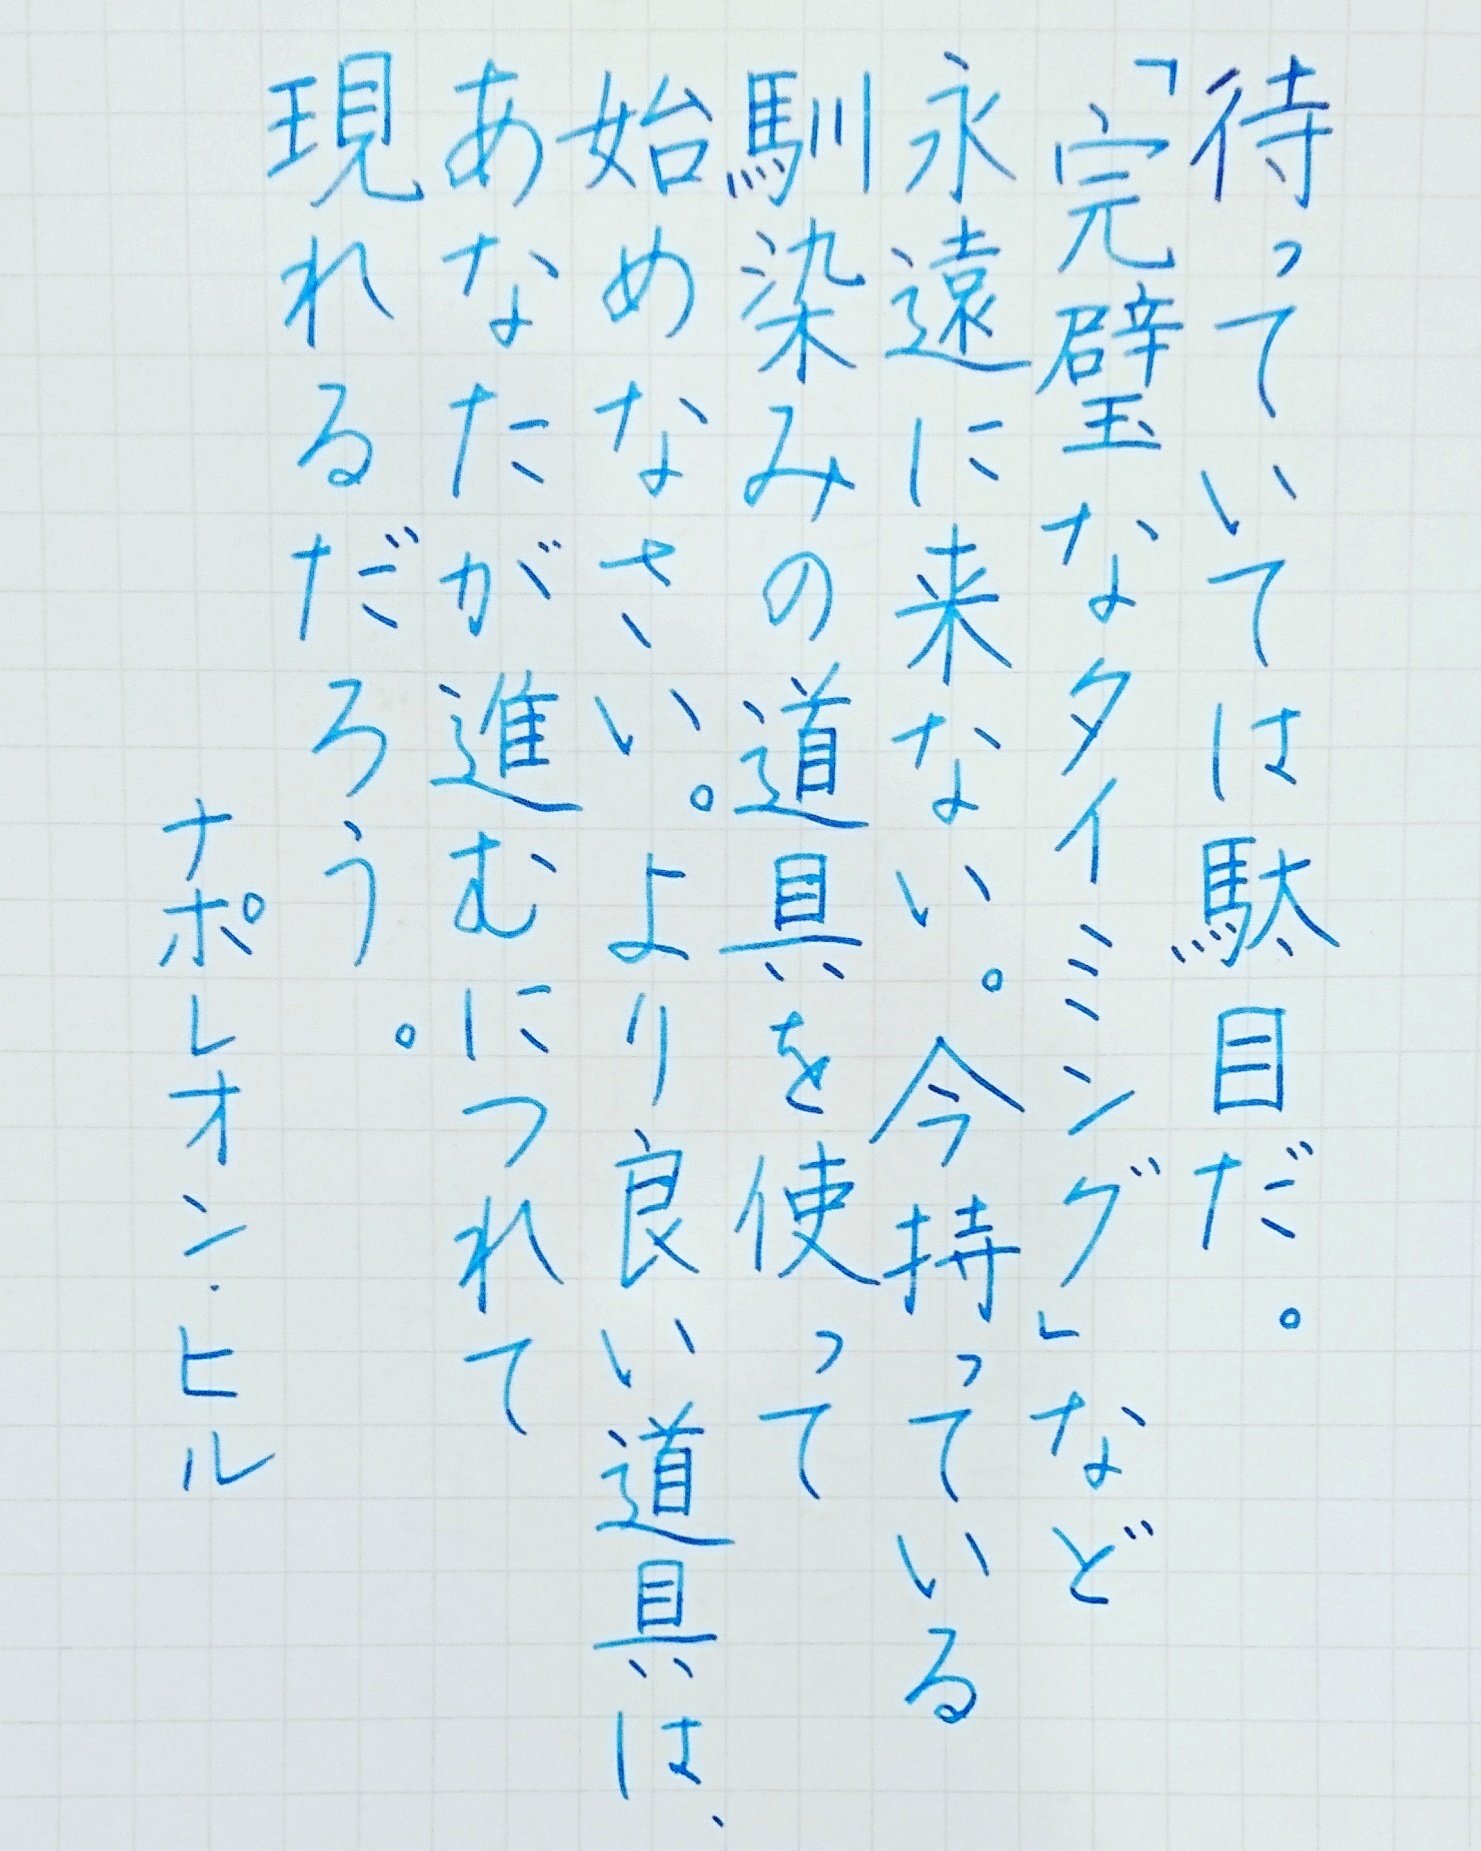 待っていては駄目だ。
「完璧なタイミング」など
永遠に来ない。今持っている
馴染みの道具を使って
始めなさい。より良い道具は、
あなたが進むにつれて
現れるだろう。
ナポレオン・ヒル